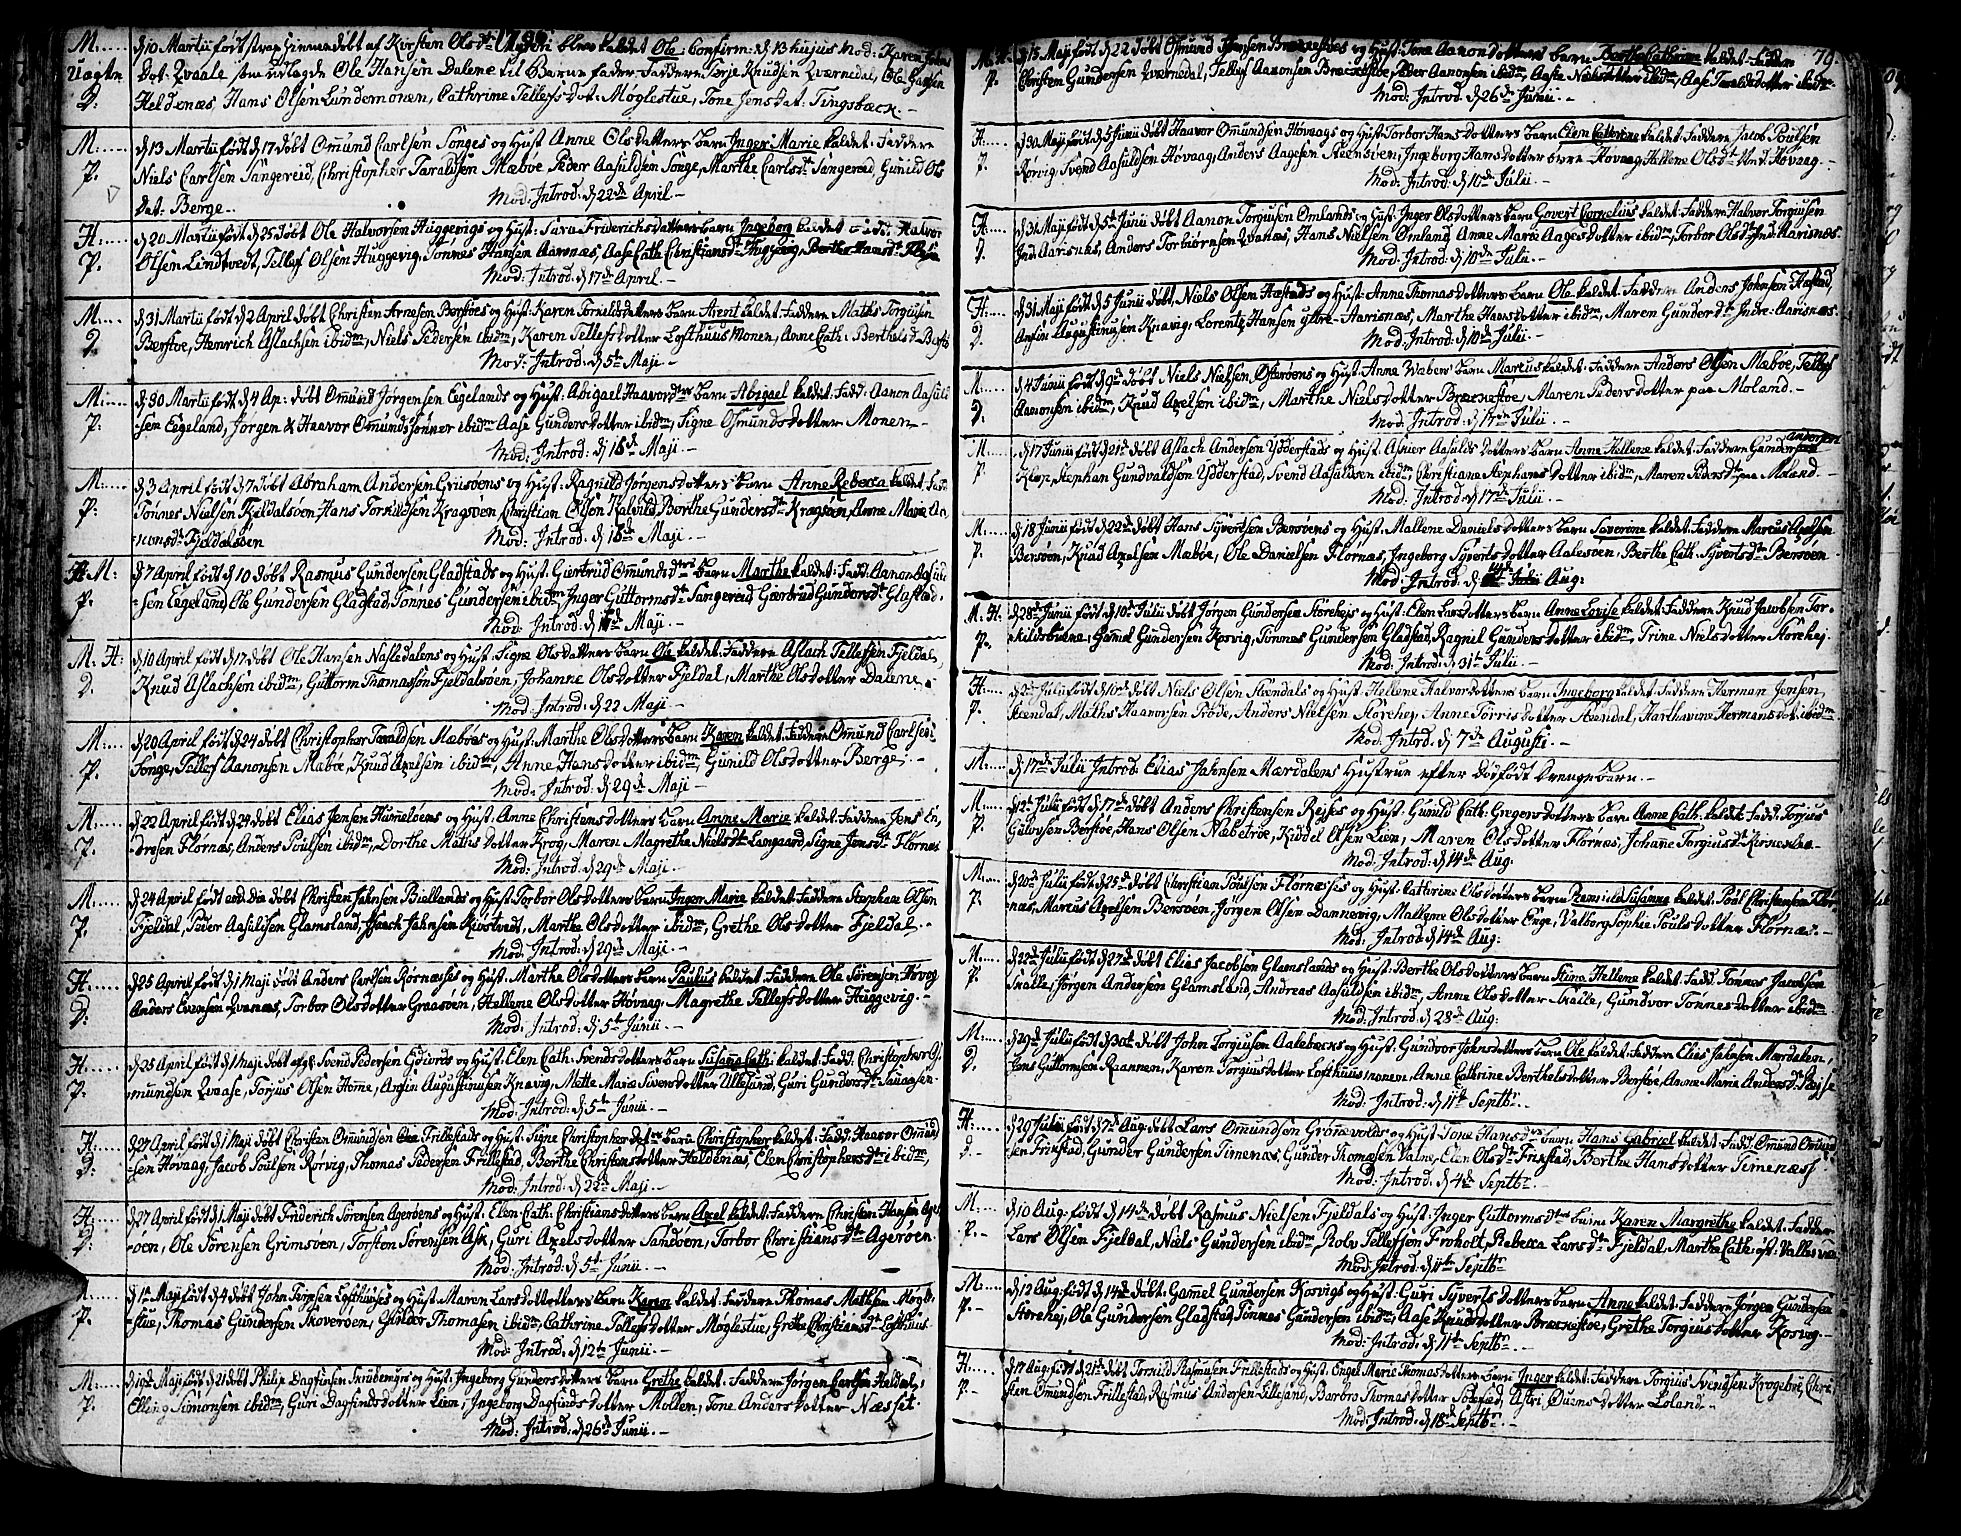 1796
M. d 10 Martii født strax hiemmedøbt af Kirsten Olsdr blev kaldet Ole. Confirm: d 13 hujus Mod: Karen
Uægte Dot. Qvaale som udlagde Ole Hansen Dalene til Barne fader. Faddere Terje Knudsen Qvernedal, Ole Hansen
D. Heldenæs, Hans Olsen Lundemonen, Cathrine Tellefs Dot: Møglestue, Tone Jens Dat: Tingsbæck.
M. d 13 Martii født d 17 døbt Omund Carlsen Songes og Hust. Anne Olsdatters barn Inger Marie kaldet: Faddere
P. Niels Carlsen Tangereid, Christopher Taraldsen Mæboe, Peder Aasuldsen Songe, Marthe Carlsdr Tangereid, Gunild Ols
Dat: Berge. Mod: Introd: d 22de April.
H. d 20 Martii født d 25 døbt Ole Halvorsen Huggevigs og Hust: Sara Friderichsdatters barn Ingeborg kaldet Halvor
P. Olsen Lindtvedt, Tellef Olsen Huggevig, Tønnes Hansen Aarnæs, Aase Cath. Christiansdr
Mod: Introd: d 17de April.
M. d 31 Martii født d 2 April døbt Christen Arnesen Berstøes og Hust: Karen Torieldsdotters barn Arent kaldet: Faddere Maths Torgiusen
D. Berstøe, Henrich Aslachsen ibidm, Niels Pedersen ibidm, Karen Tellefsdotter Lofthuus Monen, Anne Cath: Berthelsd.
Mod: Introd: d 5te Maji
M. d 30 Martii født d 4 Ap: døbt Omund Jørgensen Eegelands og Hust: Abigael Haavordtrs barn Abigael kaldet: Fadd: Aanon Aasuld
P. sen Eegeland, Jørgen & Haavor Omundssønner ibidm Aase Gundersdotter ibidm, Signe Osmundsdotter Monen
Mod: Introd: d 16de Maji
M. d 3 April født d 7 døbt Abraham Andersen Griisøens og Hust: Ragnild Jørgensdotters barn Anne Rebecca kaldet:
P. Tønnes Nielsen Fieldalsøen, Hans Torkildsen Kragsøen, Christian Olsen Kalvild, Berthe Gundersdr Kragsøen, Anne Marie
Fjeldalsøen Mod: Introd: d 16de Maji.
H. M. d 7 April født d 10 døbt Rasmus Gundersen Gladstads og Hust: Giertrud Omundsdtrs barn Marthe kaldet: Fadd: Aanon Aasuld
P. sen Eegeland, Ole Gundersen Gladstad, Tønnes Gundersen ibidm, Inger Guttormsdr Tangereid, Gertrud Gundersdr Gladstad.
Mod: Introd: d Maji.
M. H. d 10 April født d 17 døbt Ole Hansen Nasledalens og Hust: Segne Olsdatters barn Ole kaldet: Faddere Aslach Tellefsen Fjeldal,
D. Knud Aslachsen ibidm, Guttorm Thomassøn Fjeldalsøen, Johanne Olsdotter Fjeldal, Marthe Olsdotter Dalene.
Mod: Introd: d 22 Maji
M. d 20 April født d 24 døbt Christopher Taraldsen Mæboes og Hust: Marthe Olsdotters barn Karen kaldet: Faddere Omund Carlsen
P. Songe, Tellef Aanonsen Mæboe, Knud Axelsen ibidm, Anne Hansdotter ibidm, Gunild Olsdotter Berge.
Mod: Introd: d 29de Maji
M. d 22 April født d 24 døbt Elias Jensen Hummeløens og Hust: Anne Christensdotters barn Anne Marie kaldet: Faddere Jens En-
P. dresen Flørnæs, Anders Poulsen ibidm, Dorthe Mathsdotter Krog, Maren Magrethe Nielsdr Langaard, Signe Jensdr Flørnæs
Mod: Introd: d 29de Maji.
M. d 24 April født døbt Christen Jahnsen Biellands og Hust: Torbor Olsdotters barn Inger Marie kaldet: Faddere Stephan Olsen
P. Fjeldal, Peder Aasuldsen Glamsland, Isaack Jahnsen Kiøstvedt, Marthe Olsdotter ibidm, Grethe Olsdotter Fjeldal.
Mod: Introd: d 29de Maji
H. d 25 April født d 1 Maji døbt Anders Carlsen Rosnæsses og Hust: Marthe Olsdotters barn Paulus kaldet: Faddere Ole Sørensen Hovog
D. Anders Evensen Qvanæs, Torbor Olsdotter Graasøen, Hellene Olsdotter Hovaag, Magrethe Tellefsdotter Huggevig.
Mod: Introd: d 5te Junii.
H. d 25 April født d 1 Maji døbt Svend Pedersen Ediords og Hust: Elen Cath: Svendsdotters barn Susana Cath: kaldet: Fadd: Christopher G
P. mundsen Qvaase, Torjus Olsen Home, Arsin Augustinusen Knavig, Mette Marie Siversdotter Ullesund, Guri Gundersdr
Mod: Introd: d 5te Junii.
H. d 27 April født d 1 Maji døbt Christen Omundsen Frillestads og Hust: Signe Christopherdotrs barn Christopher kaldet: Fadd: Haavor Omund
D. sen Hovaag, Jacob Poulsen Rørvig, Thomas Pedersen Frillestad, Berthe Christensdotter Heldenæs, Elen Christophersdr ibidm,
Mod: Introd: d 22de Maji.
H. d 27 April født d 1 Maji døbt Friderich Sørensen Agerøens og Hust: Elen Cath: Christiansdotters barn Axel kaldet: Faddere Christen Hansen Age
D. røen, Ole Sørensen Grimsøen, Torsten Sørensen Ask, Guri Axelsdotter Sandøen, Torbor Christiansdr Agerøen
Mod: Introd: d 5te Junii.
M. d 1te Maji født d 4 døbt John Terjesen Lofthuuses og Hust: Maren Larsdotters barn Karen kaldet: Faddere Thomas Mathsen Mogle
P. stue, Thomas Gundersen Skoverøen, Gunder Thomasen ibidm, Cathrine Tellefsdotter Møglestue, Grethe Christiansdr Lofthuus
Mod: Introd: d 12te Junii.
M. d 19de Maji født d 21 døbt Philip Dagfinsen Skiubemyrs og Hust: Ingeborg Gundersdotters barn Grethe kaldet: Faddere Jørgen Carlsen Heldal,
P. Elling Simonsen ibidm, Guri Dagfinsdotter Lien, Ingeborg Dagfinsdotter Mollen, Tone Andersdotter Næsset.
Mod: Introd: d 26de Junii.
79.
M. H. d 15 Maji født d 22 døbt Osmund Jensen Brækkestøes og Hust: Tone Aanondotters barn Berthe Cathrine kaldet: Faddere
P. Christen Gundersen Qvernedal, Tellef Aanonsen Brækkestøe, Peder Aanonsen ibidm, Aaste Nielsdotter ibidm, Aase Taraldsdotter ibidm
Mod: Introd: d 26de Junii.
H. d 30 Maji født d 5 Junii døbt Haavor Omundsen Hovaags og Hust: Torbor Hansdotters barn Elen Cathrine kaldet: Faddere Jacob Poulsen
P. Rørvig, Svend Aasuldsen Hovaag, Anders Aagesen Steensøen, Ingeborg Hansdotter Hovaag, Hellene Olsdr Hovaag.
Mod: Introd: d 10de Julii.
H. d 31 Maji født d 5te Junii døbt Aanon Torgiusen Omlands og Hust: Inger Olsdotters barn Govert Cornelius kaldet: Faddere Halvor Torgiusen
D. Ind. Aarisnæs, Anders Torbiørnsen Qvanæs, Hans Nielsen Omland, Anne Marie Aagesdotter ibidm, Torbor Olsdr Ind. Aarisnæs.
Mod: Introd: d 10de Julii.
H. d 31 Maji født d 5 Junii døbt Niels Olsen Hæstads og Hust: Anne Thomasdotters barn Ole kaldet: Faddere Anders Johnsen Hæstad,
D. Arsin Augustinusen Knavig, Lorentz Hansen yttre Aarisnæs, Marthe Hansdotter ibidm, Maren Gunderdr Indre-Aarisnæs.
Mod: Introd: d 10de Julii.
M. d 4 Junii født d 9de døbt Niels Nielsen Østerøens og Hust: Anne Wabens barn Marcus kaldet: Faddere Anders Olsen Mæboe, Tellef
D. Aanonsen ibidm, Knud Axelsen ibidm, Marthe Nielsdotter Brækkestøe, Maren Pedersdotter paa Moland.
Mod: Introd: d 17de Julii
M. d 17 Junii født d 21de døbt Aslach Andersen Ydderstads og Hust: Asver Aasuldsdotters barn Anne Hellene kaldet: Faddere Gunder Andersen
P. Klep, Stephan Gundvaldsøn Ydderstad, Svend Aasuldsen ibidm, Christiane Stephansdotter ibidm, Maren Pedersdr paa Moland.
Mod: Introd: d 17de Julii.
M. d 18 Junii født d 22de døbt Hans Syvertsen Bersøens og Hust: Mallene Danielsdotters barn Severine kaldet: Faddere Marcus Axelsen
P. Bersøen, Knud Axelsen Mæbøe, Ole Danielsen Flørnæs, Ingeborg Syvertsdotter Aalesøen, Berthe Cath. Syvertsdr Bersøen
Mod: Introd: d 14de Aug:
M. H. d 28de Junii født d 10de Julii døbt Jørgen Gundersen Størehejs og Hust: Elen Larsdotters barn Anne Lovise kaldet: Faddere Knud Jacobsen Tor-
P. kildsbuene, Gamel Gundersen Kosvig, Tønnes Gundersen Gladstad, Ragnil Gundersdotter ibidm, Trine Nielsdotter Størehej.
Mod: Introd: d 31te Julii.
H. d 2de Julii født d 10de døbt Niels Olsen Stendals og Hust: Hellene Halvorsdotters barn Ingeborg kaldet: Faddere Herman Jensen
P. Stendal, Maths Haavorsen Trøde, Anders Nielsen Størehej, Anne Torrisdotter Stendal, Karthavine Hermansdot: ibidm
Mod: Introd: d 7de Augusti.
M. d 17de Julii Introd: Elias Jahnsen Mærdalens Hustrue efter dødfødt Drengebarn.
M. d 12te Julii født d 17de døbt Anders Christensen Rejses og Hust: Gunild Cath. Gregersdotters barn Anne Cath. kaldet: Fadd: Torjus
P. Gulovsen Berstøe, Hans Olsen Nabetrøe, Kiddel Olsen Lien, Maren Olsdotter Flørnæs, Johanne Torgiusdr
Mod: Introd: d 14de Aug:
M. d 20de Julii født d 25de døbt Christian Poulsen Flørnæsses og Hust: Cathrine Olsdotters barn Ramild Susanne kaldet: Poul Christensen Flør
P. næs, Marcus Axelsen Bersøen, Jørgen Olsen Dannevig, Mallene Olsdotter Enge, Valborg Sophie Poulsdotter Flørnæs.
Mod: Introd: d 14de Aug:
M. d 22de Julii født d 27de døbt Elias Jacobsen Glamslands og Hust: Berthe Olsdotters barn Stina Hellene kaldet: Fadd: Tønnes Jacobsen
P. Tralle, Jørgen Andersen Glamsland, Andreas Aasuldsen ibidm, Anne Olsdotter Tralle, Gundvor Tønnesdotter ibidm
Mod: Introd: d 28de Aug:
M. d 29de Julii født d 30te døbt John Torgiusen Aakebecks og Hust: Gundvor Johnsdotters barn Ole kaldet: Faddere Elias Jahnsen Mærdalen,
D. Jens Guttormsen Raannen, Karen Torgiusdotter Lofthuusmonen, Anne Cathrine Berthelsdotter Berstøe, Anne Marie Andersdr Rejse
Mod: Introd: d 11te Septbr.
H. d 29 Julii født d 7de Aug: døbt Lars Omundsen Grønnevolds og Hust: Tone Hansdtrs barn Hans Gabriel kaldet: Fadd: Omund Omund
D. sen Frixstad, Gunder Gundersen Timenæs, Gunder Thomæsen Valne, Elen Olsdr Frixstad, Berthe Hansdotter Timenæss.
Mod: Introd: d 4de Septbr.
M. d 10 Aug: født d 14de døbt Rasmus Nielsen Fjeldals og Hust: Inger Guttormsdtrs barn Karen Margrethe kaldet: Faddere
P. Lars Olsen Fjeldal, Niels Gundersen ibidm, Rolv Tellefsen Froholt, Rebecca Larsdr Fjeldal, Marthe Cath:
Mod: Introd: d 11te Septbr
M. d 12 Aug: født d 14de døbt Gammel Gundersen Kosvigs og Hust: Guri Syvertsdotters barn Anne kaldet: Faddere Jørgen Gundersen
P. Størehej, Ole Gundersen Gladstad, Tønnes Gundersen ibidm, Aase Knudsdotter Brækkestøe, Grethe Torgiusdotter Kosvog.
Mod: Introd: d 11te Septbr.
H. d 17 Aug: født d 21de døbt Tornild Rasmusen Frillestads og Hust: Engel Marie Thomasdotters barn Inger kaldet: Faddere Torgius Svendsen Krogebøe, Chri-
P. sten Omundsen Frillestad, Rasmus Andersen Lillesand, Barbro Thomasdotter, Astri Ouensdotter Loland.
Mod: Introd: d 18de Septbr.